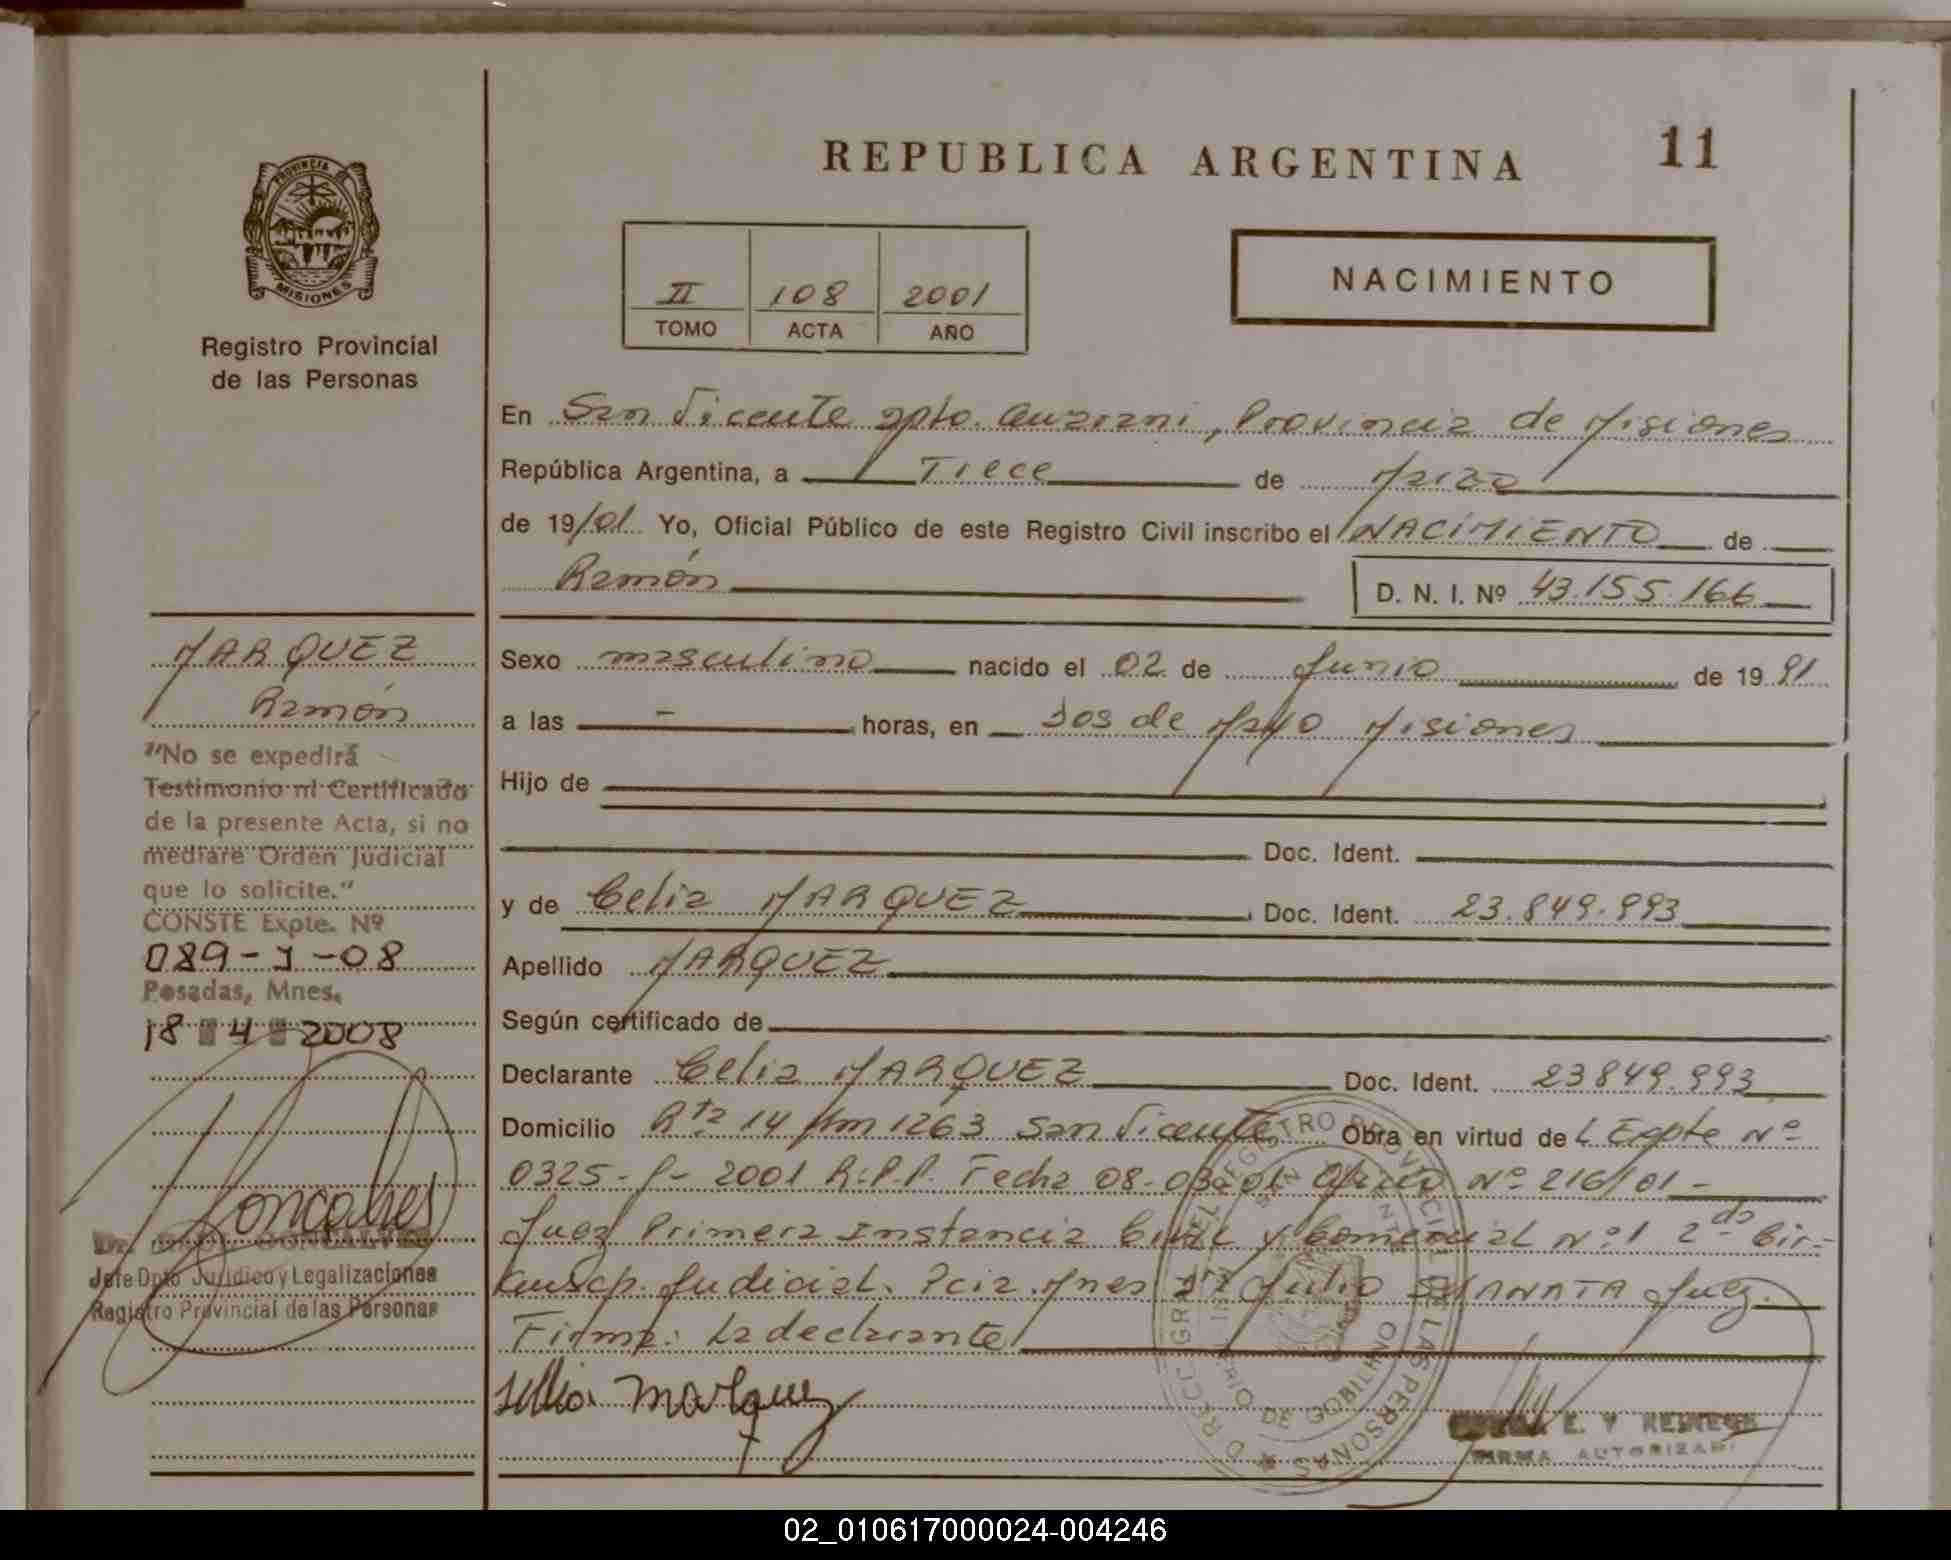 REPUBLICA ARGENTINA
11
PROVINCIA DE
MISIONES
Registro Provincial
de las Personas
II 108 2001
TOMO ACTA AÑO
NACIMIENTO
En San Vicente Dpto. Guarani, Provincia de Misiones
República Argentina, a Trece de Marzo
de 19/01 Yo, Oficial Público de este Registro Civil inscribo el NACIMIENTO de
Ramón D. N. I. Nº 43.155.166
Sexo masculino nacido el 02 de Junio de 19 91
a las - horas, en Dos de Mayo Misiones
Hijo de
Doc. Ident.
y de Celia MARQUEZ Doc. Ident. 23.849.993
Apellido MARQUEZ
Según certificado de
Declarante Celia MARQUEZ Doc. Ident. 23849.993
Domicilio Rta 14 Km 1263 San Vicente Obra en virtud de L Expte Nº
0325-P-2001 R.P.P. Fecha 08-03-01 Oficio Nº 216/01-
Juez Primera Instancia Civil y Comercial Nº 1 2da Cir-
cunscp. Judicial. Pcia. Mnes Julio Juez.
Firma: La declarante
Marquez
MARQUEZ
Ramón
"No se expedirá
Testimonio ni Certificado
de la presente Acta, si no
mediare Orden Judicial
que lo solicite."
CONSTE Expte. Nº
089-J-08
Posadas, Mnes.
18 4 2008
Goncalves
Dr. GONCALVES
Jefe Dpto Jurídico y Legalizaciones
Registro Provincial de las Personas
REGISTRO PROVINCIAL DE LAS PERSONAS
SAN VICENTE
E. V REINECK
FIRMA AUTORIZADA
02_010617000024-004246